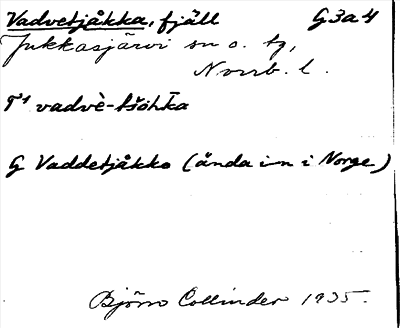 Vadvetjåkka, fjäll G3a4
Jukkasjärvi sn o. tg,
Norrb. l.
T¹ vadvè-tšohka
G Vaddetjåkko (ända in i Norge)
Björn Collinder 1935.